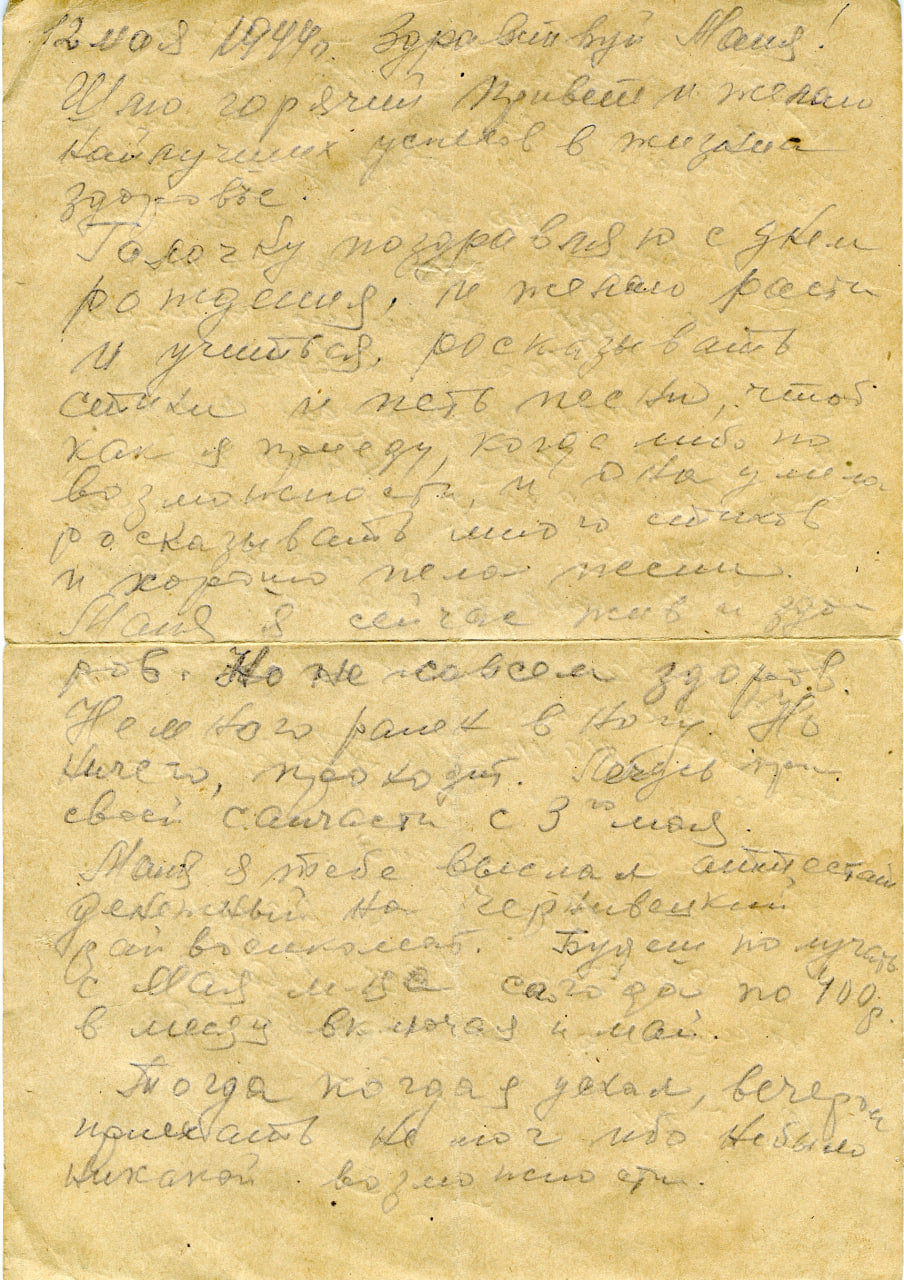 12 мая 1944г. Здравствуй Маня!
Шлю горячий привет и желаю
найлучших успехов в жизни и
здоровье.
Галочку поздравляю с днем
рождения, и желаю расти
и учиться, росказывать
стихи и петь песни, чтоб
как я приеду, когда либо по
возможности, и она умела
росказывать много стихов
и хорошо пела песни.
Маня я сейчас жив и здо
ров. Но не совсем здоров.
Немного ранен в ногу. Но
ничего, проходит. Лечусь при
своей санчасти с 3го мая.
Маня я тебе выслал аттестат
денежный на
райвоенкомат. Будеш получать
с Мая м-ца по 400 р.
в месяц включая и май.
Тогда когда я уехал, вечером
приехать не мог ибо небыло
никакой возможности.